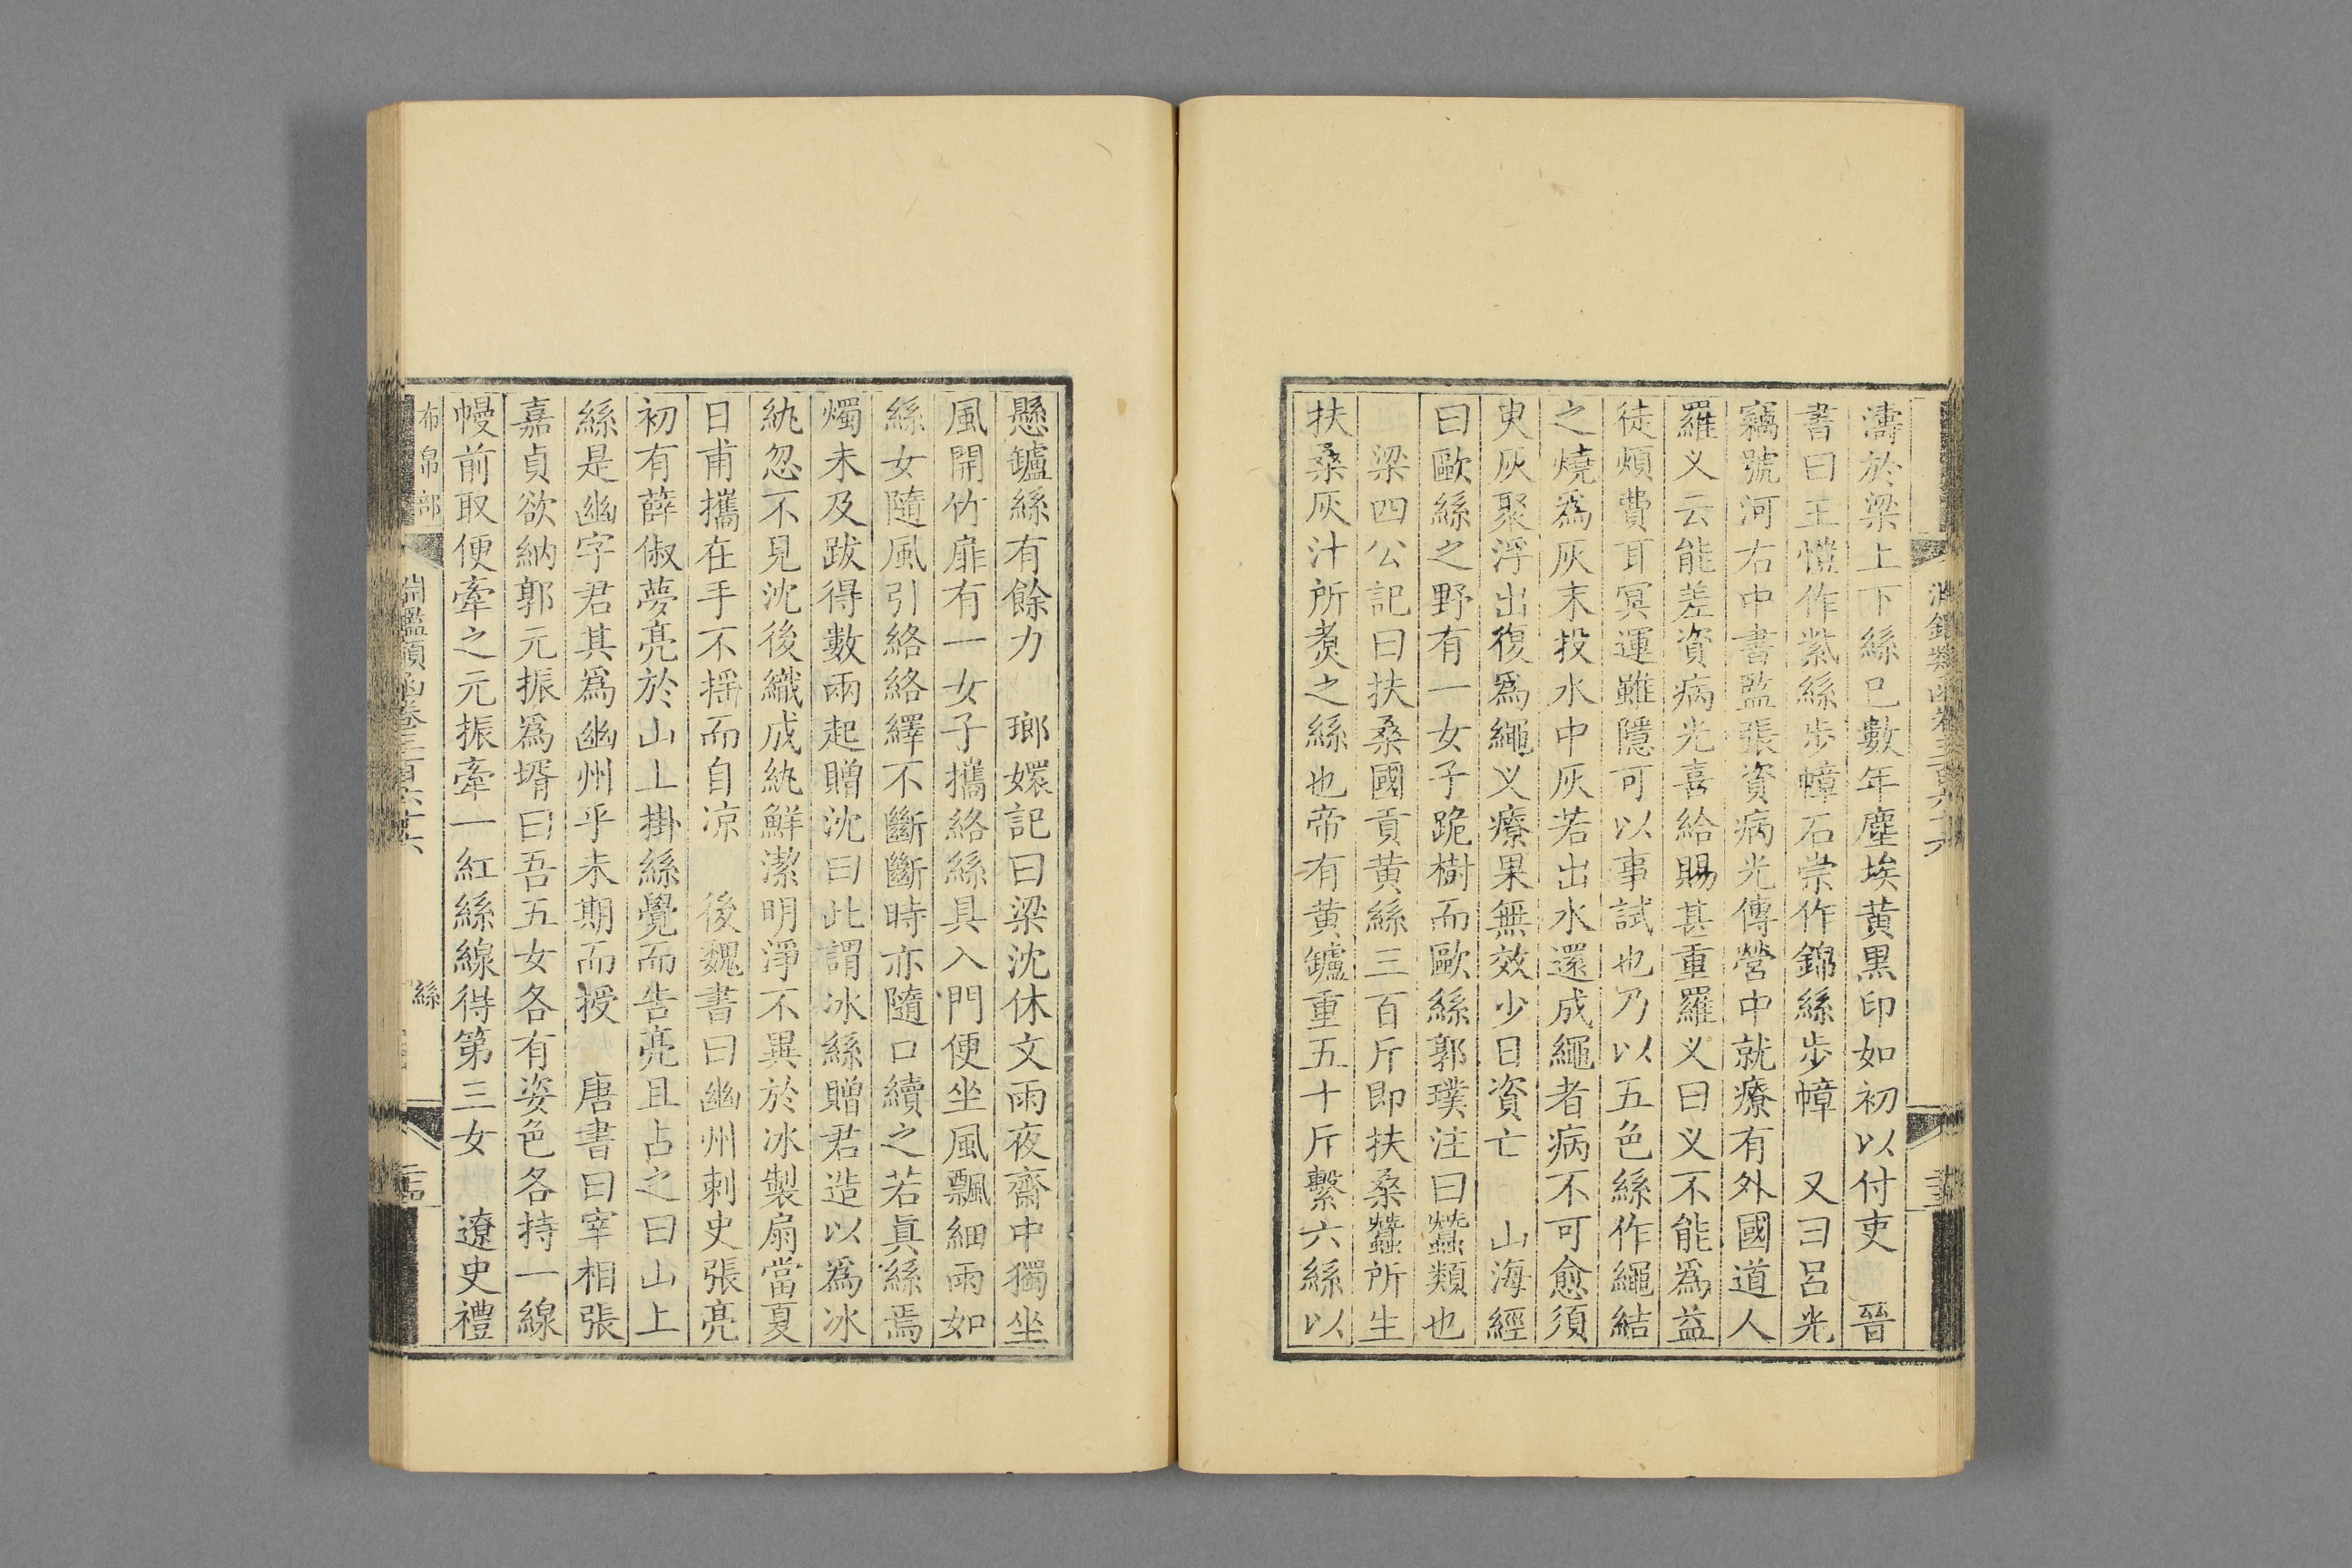 濤於梁上下絲巳數年塵埃黄黒印如初以付吏 晉
書曰王愷作紫絲步幛石崇作錦絲步幛 又曰呂光
竊號河右中書監張資病光傳營中就療有外國道人
羅义云能差資病光喜給賜甚重羅义曰义不能爲益
徒煩費耳冥運雖隱可以事試也乃以五色絲作繩結
之燒爲灰末投水中灰若出水還成繩者病不可愈須
臾灰聚浮出復爲繩义療果無效少日資亡 山海經
曰歐絲之野有一女子跪樹而歐絲郭璞注曰蠶類也
梁四公記曰扶桑國貢黄絲三百斤即扶桑蠶所生
扶桑灰汁所煑之絲也帝有黄鑪重五十斤繫六絲以
懸鑪絲有餘力 瑯嬛記曰梁沈休文雨夜齋中獨坐
風開竹扉有一女子攜絡絲具入門便坐風飄細雨如
絲女隨風引絡絡繹不斷斷時亦隨口續之若眞絲焉
燭未及跋得數兩起贈沈曰此謂冰絲贈君造以爲冰
紈忽不見沈後織成紈鮮潔明淨不異於冰製扇當夏
日甫攜在手不揺而自凉 後魏書曰幽州刺史張亮
初有薛俶夢亮於山上掛絲覺而告亮且占之曰山上
絲是幽字君其爲幽州乎未期而授 唐書曰宰相張
嘉貞欲納郭元振爲壻曰吾五女各有姿色各持一線
幔前取便牽之元振牽一紅絲線得第三女 遼史禮
布帛部 絲
淵鑑類函卷三百六十六